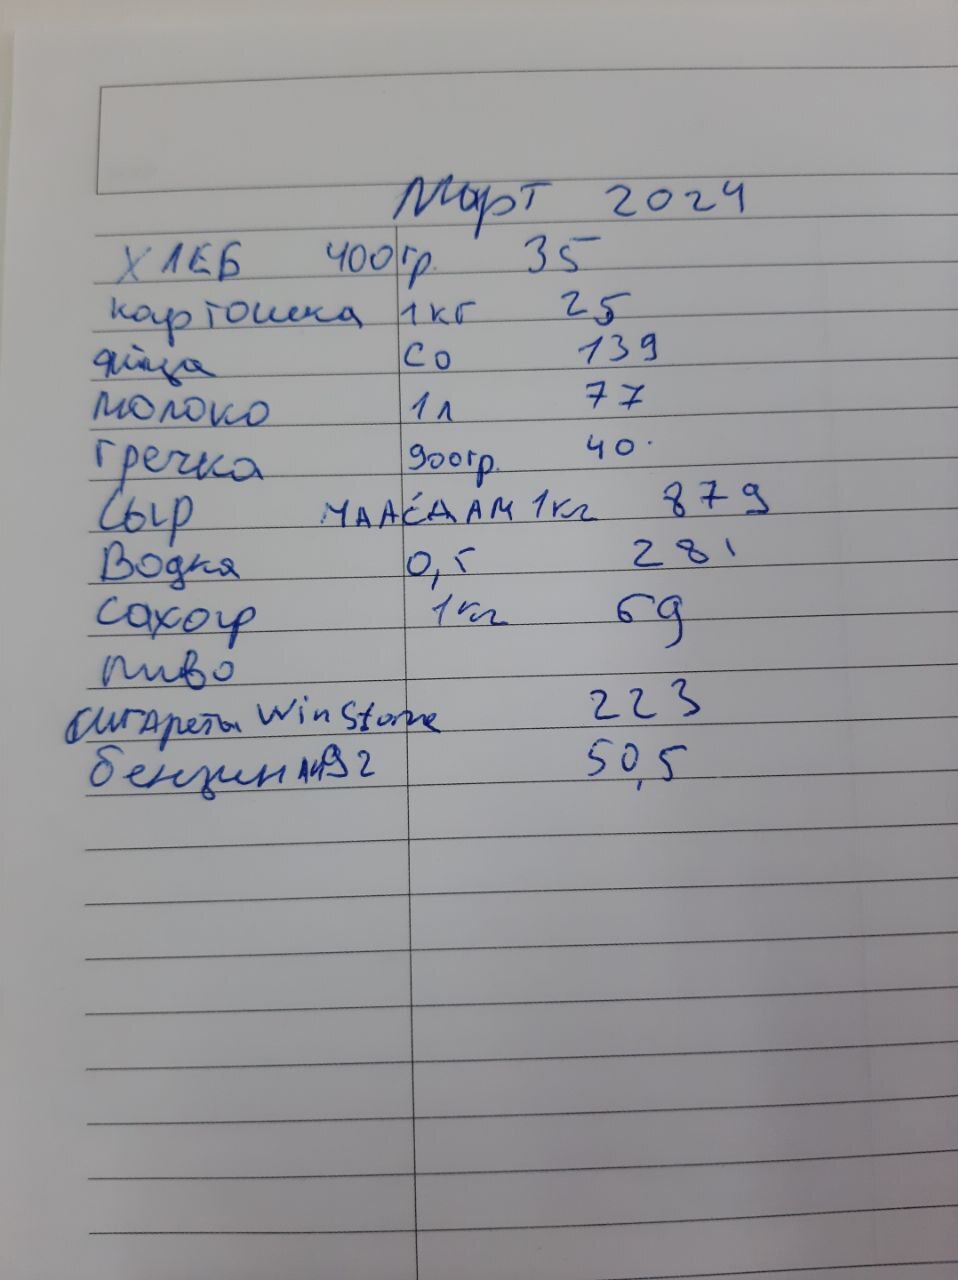 Март 2024
ХЛЕБ 400гр. 35
картошка 1кг 25
яйца СО 139
молоко 1л 77
гречка 900гр. 40
Сыр МААСДАМ 1кг 879
Водка 0,5 281
сахар 1кг 69
пиво
сигареты WinStone 223
бензин АИ92 50,5